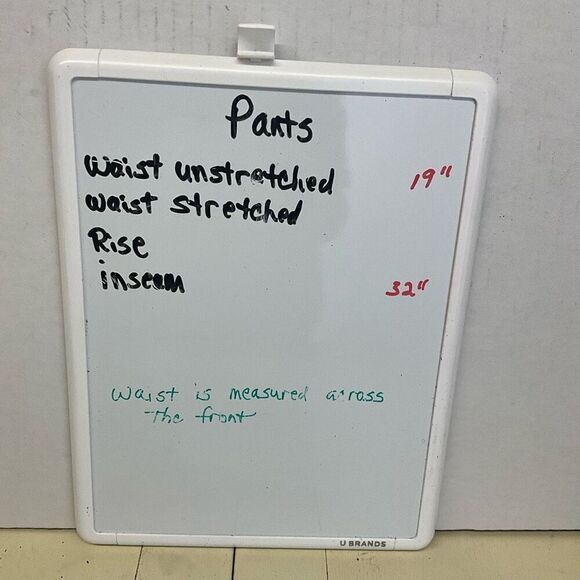 Pants
waist unstretched 19"
waist stretched
Rise
inseam 32"
waist is measured across
The front
U BRANDS